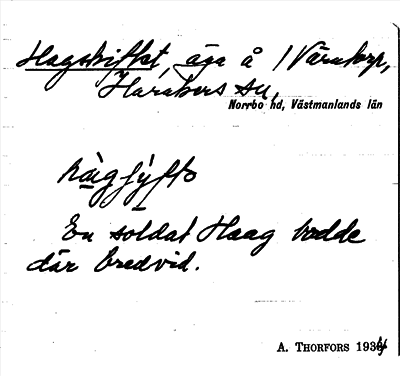 Hagskiftet, äga å 1 Värntorp,
Harakers sn,
Norrbo hd, Västmanlands län
En soldat Haag bodde
där bredvid.
A. THORFORS 1934